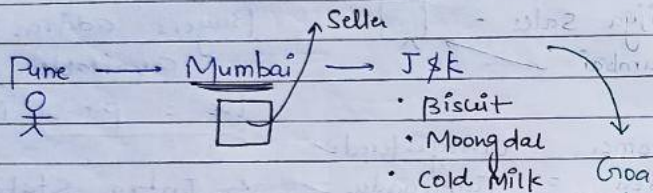 Seller
Pune → Mumbai → J & K
• Biscuit
• Moong dal
• Cold Milk
Goa